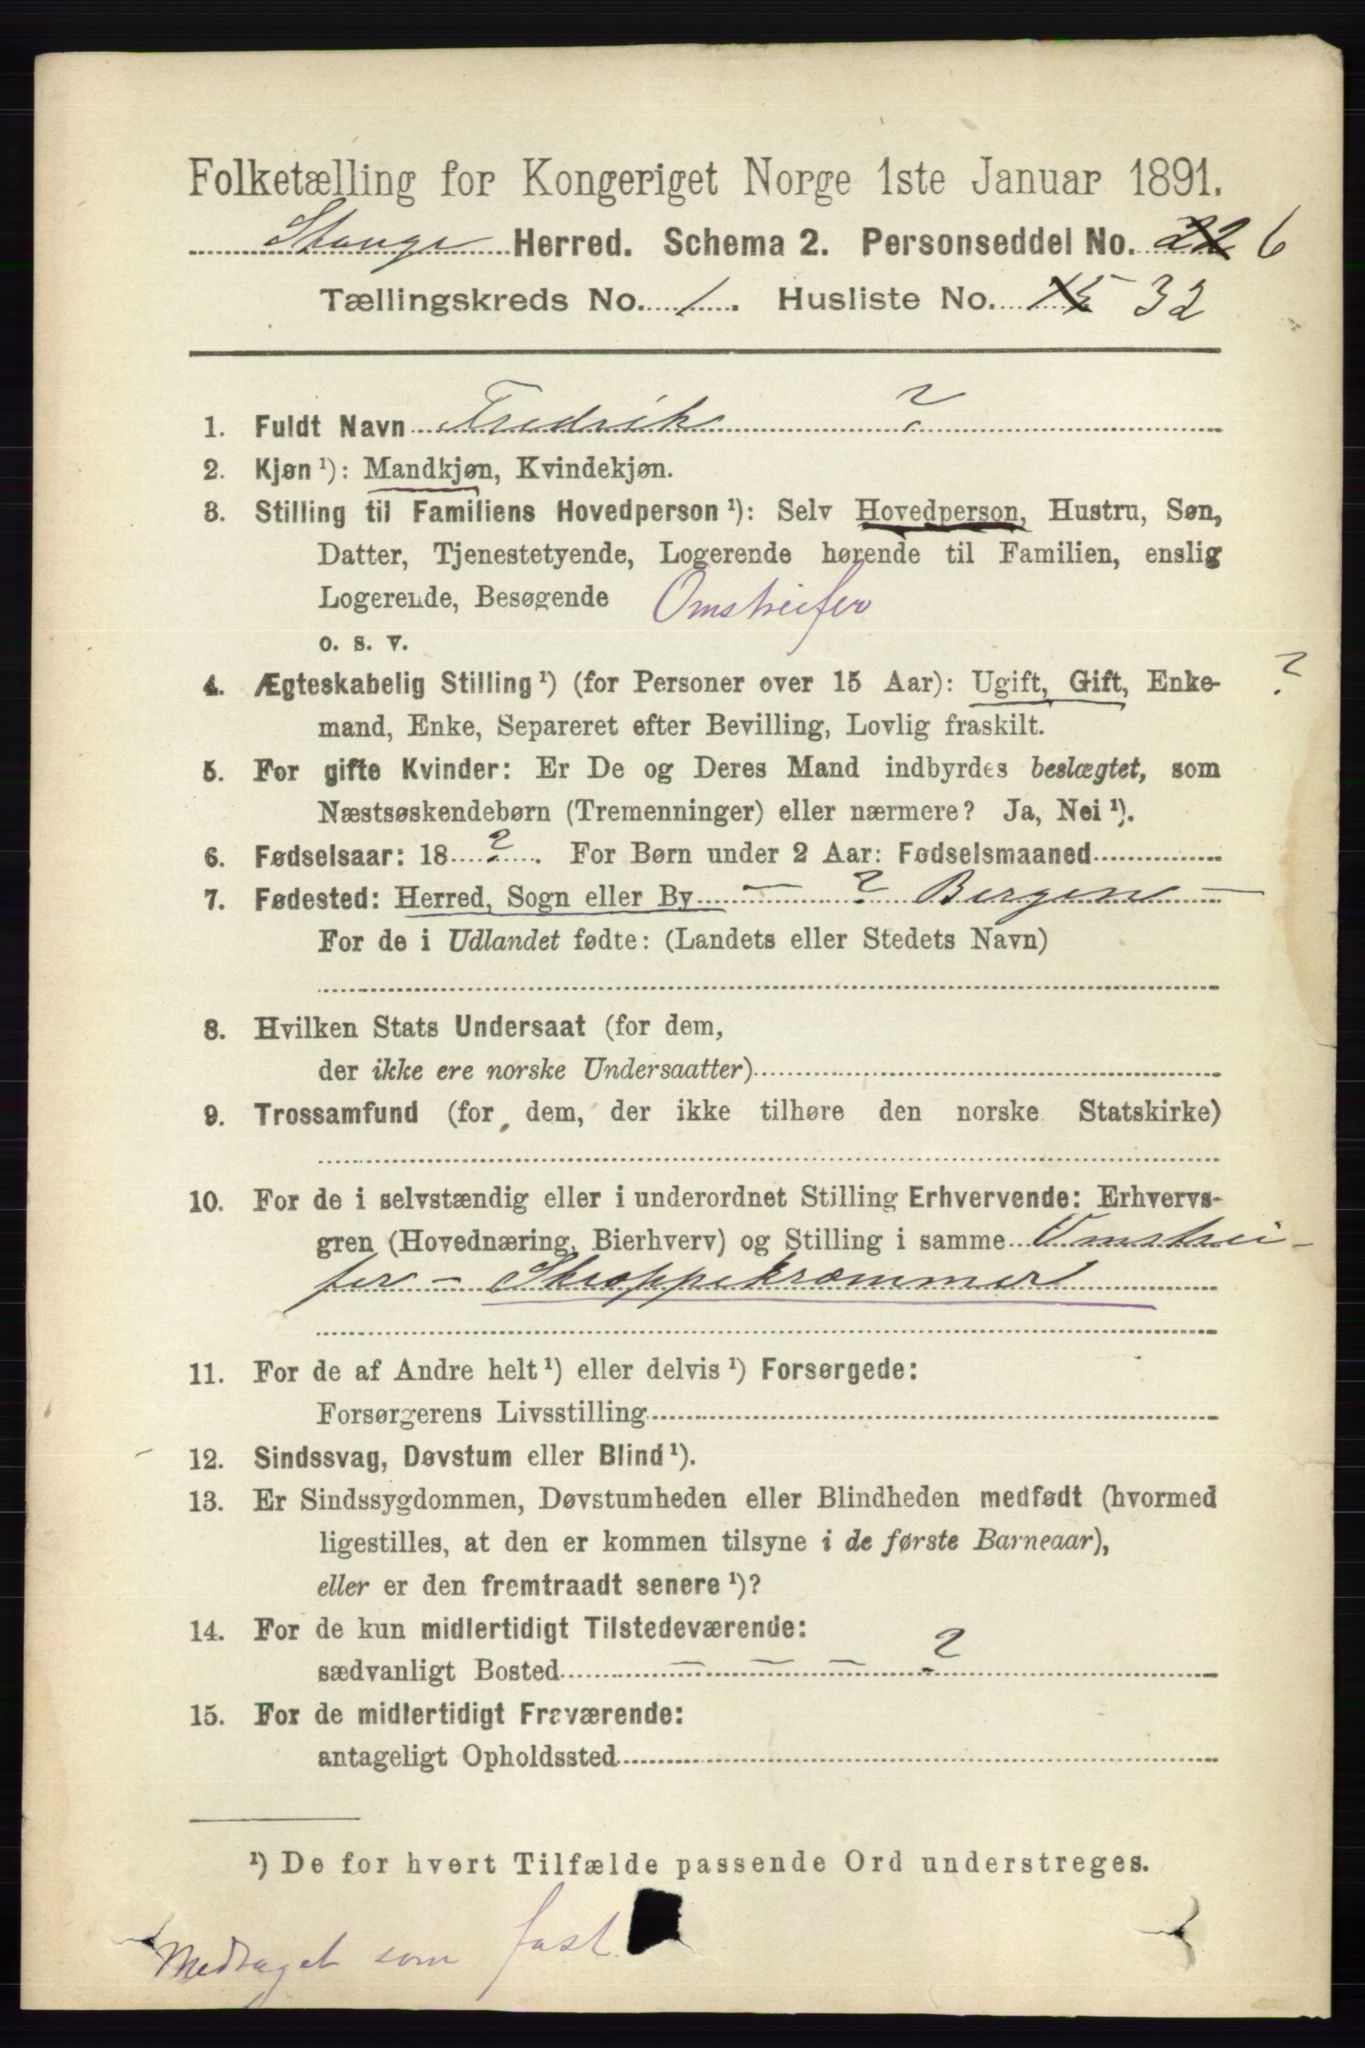 Folketælling for Kongeriget Norge 1ste Januar 1891.
Stange Herred. Schema 2. Personseddel No. 22 6
Tællingskreds No. 1. Husliste No. 15 32
1. Fuldt Navn Fredrik ?
2. Kjøn ¹): Mandkjøn, Kvindekjøn.
3. Stilling til Familiens Hovedperson ¹): Selv Hovedperson, Hustru, Søn,
Datter, Tjenestetyende, Logerende hørende til Familien, enslig
Logerende, Besøgende Omstreifer
o. s. v.
4. Ægteskabelig Stilling ¹) (for Personer over 15 Aar): Ugift, Gift, Enke- ?
mand, Enke, Separeret efter Bevilling, Lovlig fraskilt.
5. For gifte Kvinder: Er De og Deres Mand indbyrdes beslægtet, som
Næstsøskendebørn (Tremenninger) eller nærmere? Ja, Nei ¹).
6. Fødselsaar: 18 ? . For Børn under 2 Aar: Fødselsmaaned
7. Fødested: Herred, Sogn eller By — ? Bergen —
For de i Udlandet fødte: (Landets eller Stedets Navn)
8. Hvilken Stats Undersaat (for dem,
der ikke ere norske Undersaatter)
9. Trossamfund (for dem, der ikke tilhøre den norske Statskirke)
10. For de i selvstændig eller i underordnet Stilling Erhvervende: Erhvervs-
gren (Hovednæring, Bierhverv) og Stilling i samme Omstrei-
fer — Skræppekræmmer
11. For de af Andre helt ¹) eller delvis ¹) Forsørgede:
Forsørgerens Livsstilling
12. Sindssvag, Døvstum eller Blind ¹).
13. Er Sindssygdommen, Døvstumheden eller Blindheden medfødt (hvormed
ligestilles, at den er kommen tilsyne i de første Barneaar),
eller er den fremtraadt senere ¹)?
14. For de kun midlertidigt Tilstedeværende:
sædvanligt Bosted — — — ?
15. For de midlertidigt Fraværende:
antageligt Opholdssted
¹) De for hvert Tilfælde passende Ord understreges.
Medtaget som fast